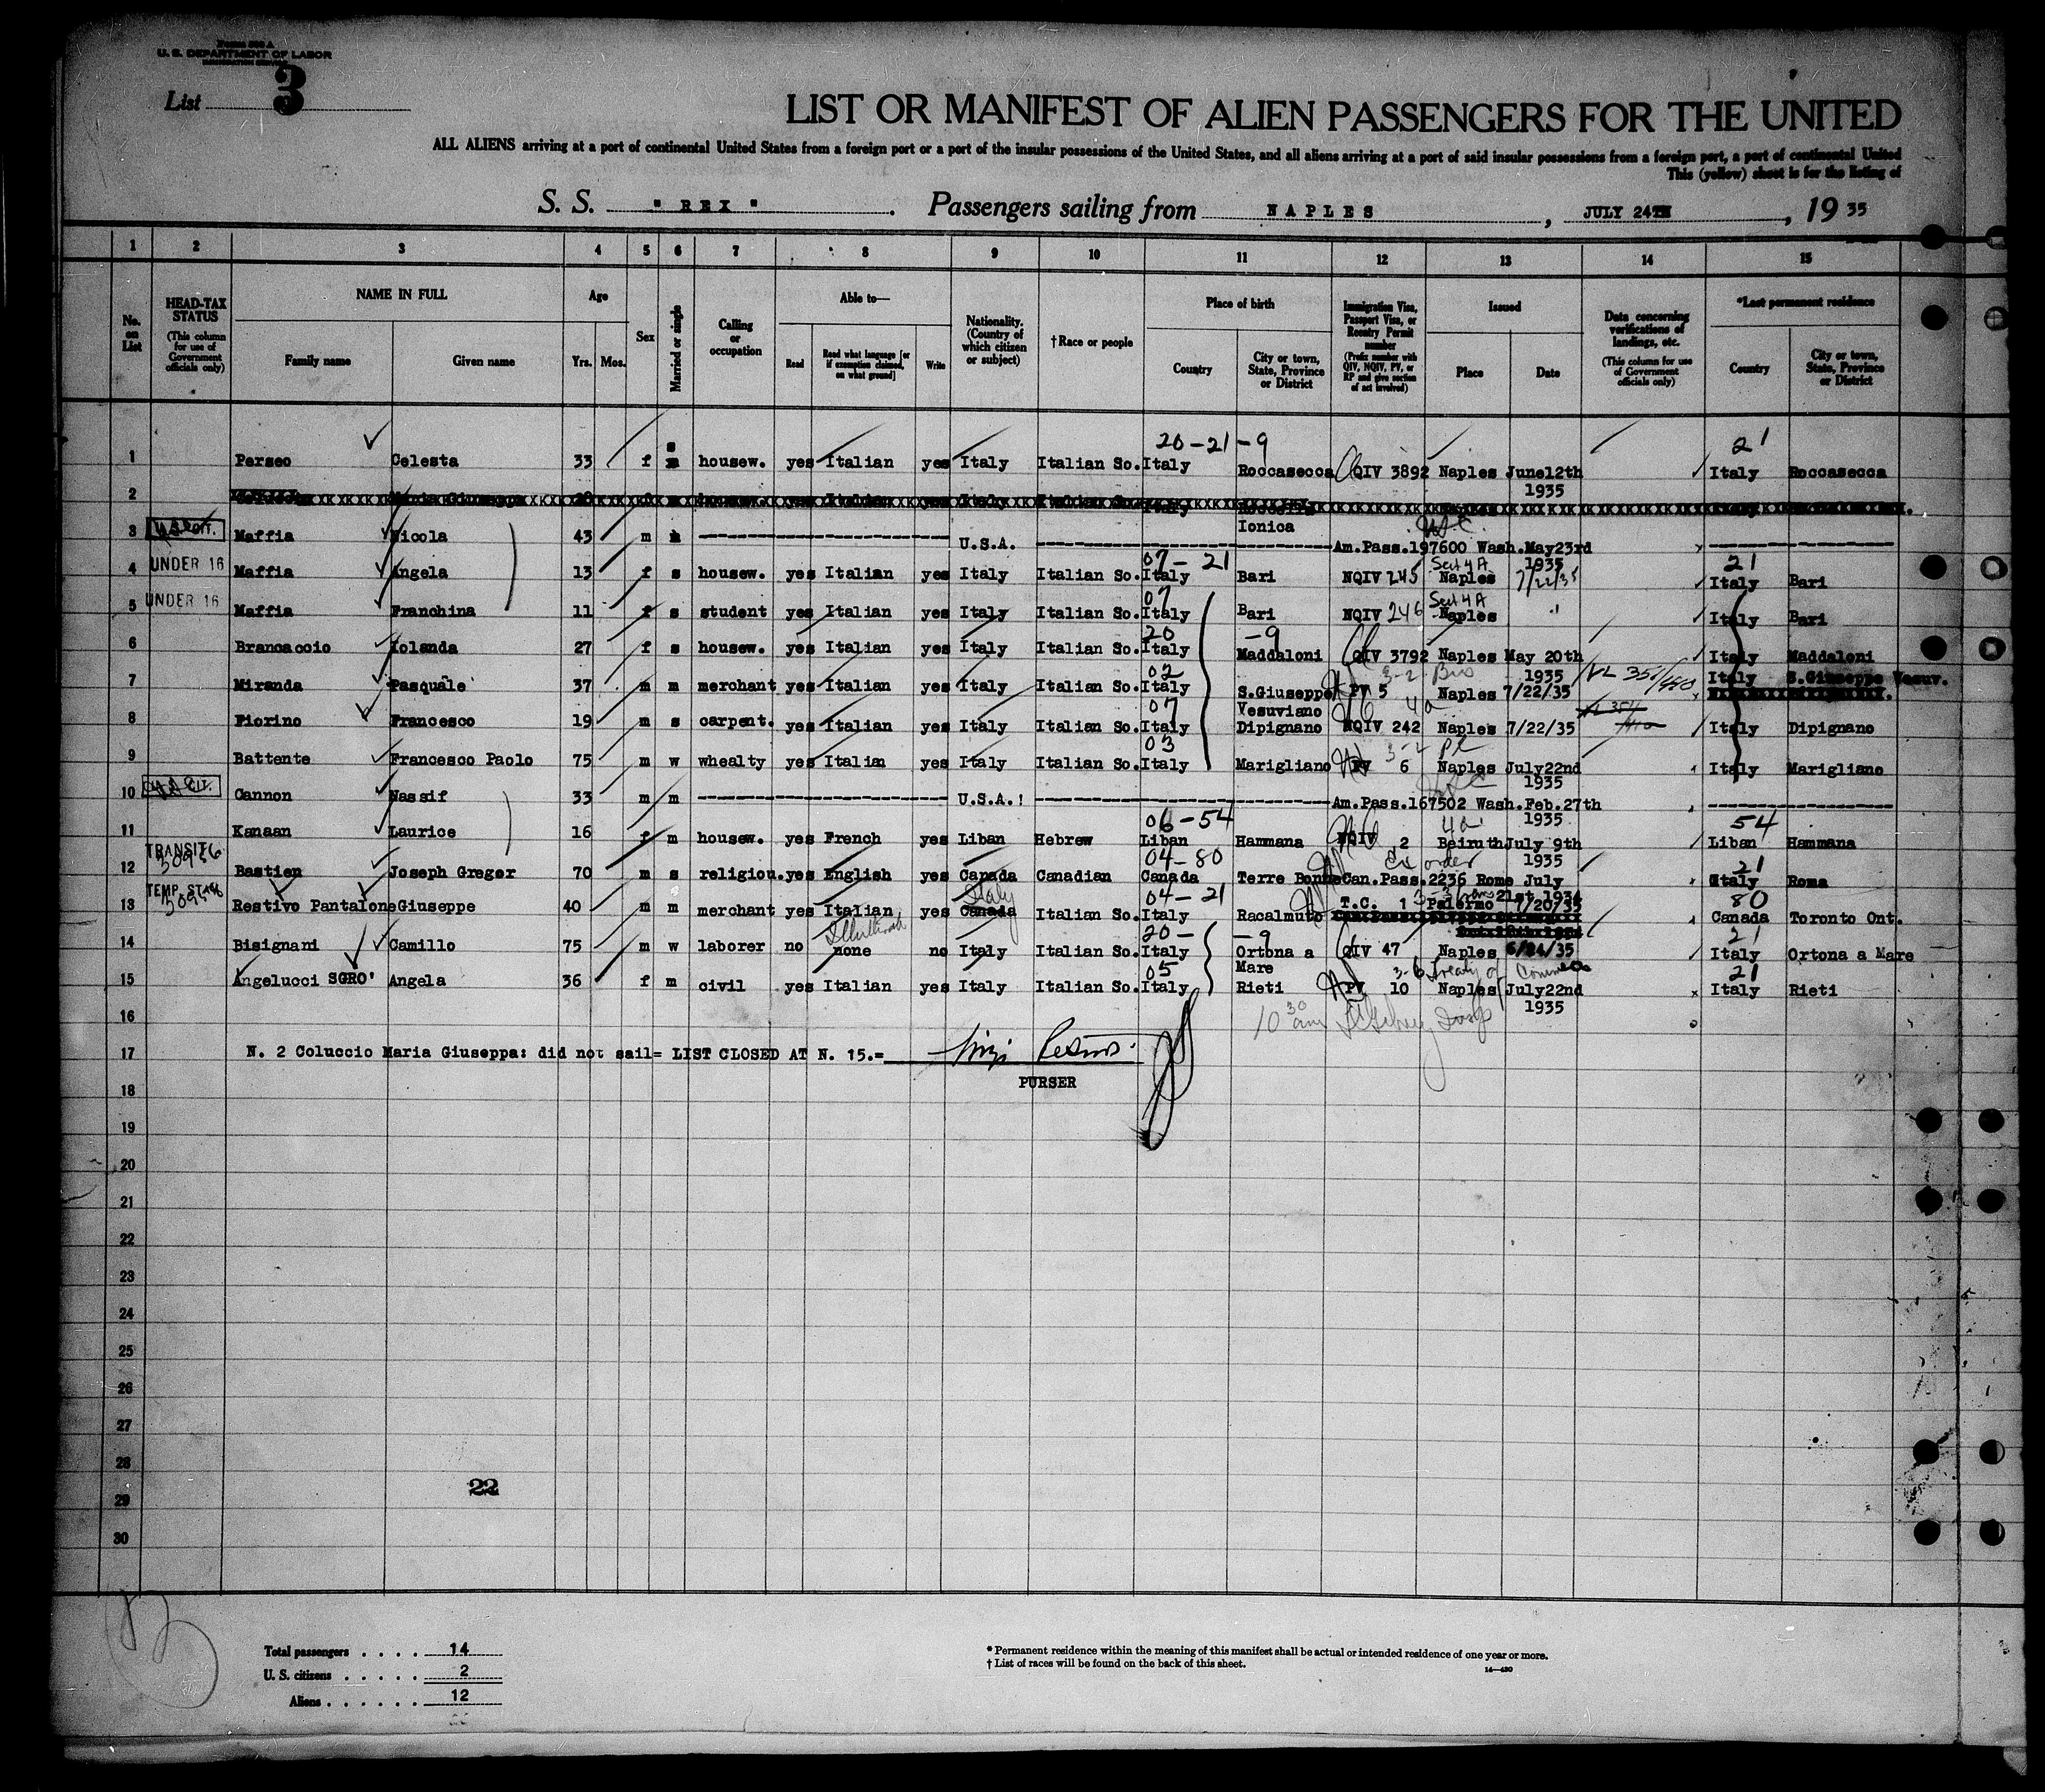 Form 500 A
U. S. DEPARTMENT OF LABOR
IMMIGRATION SERVICE
List 3
LIST OR MANIFEST OF ALIEN PASSENGERS FOR THE UNITED
ALL ALIENS arriving at a port of continental United States from a foreign port or a port of the insular possessions of the United States, and all aliens arriving at a port of said insular possessions from a foreign port, a port of continental United
This (yellow) sheet is for the listing of
S. S. " REX " . Passengers sailing from NAPLES , JULY 24TH , 19 35
1 2 3 4 5 6 7 8 9 10 11 12 13 14 15
No. on List
HEAD-TAX STATUS (This column for use of Government officials only)
NAME IN FULL Family name Given name
Age Yrs. Mos.
Sex
Married or single
Calling or occupation
Able to— Read Read what language [or if exemption claimed, on what ground] Write
Nationality. (Country of which citizen or subject)
†Race or people
Place of birth Country City or town, State, Province or District
Immigration Visa, Passport Visa, or Reentry Permit number (Prefix number with QIV, NQIV, PV, or RP and give section of act involved)
Issued Place Date
Data concerning verifications of landings, etc. (This column for use of Government officials only)
*Last permanent residence Country City or town, State, Province or District
20-21-9 21
1 Perseo Celesta 33 f s housew. yes Italian yes Italy Italian So. Italy Roccasecca QIV 3892 Naples June12th 1935 Italy Roccasecca
2 Maria Giuseppa Ionica
3 U.S. CIT. Maffia Nicola 43 m m U.S.A. Am.Pass.197600 Wash.May23rd 1935
07-21 Sect 4A 21
4 UNDER 16 Maffia Angela 13 f s housew. yes Italian yes Italy Italian So. Italy Bari NQIV 245 Naples 7/22/35 Italy Bari
07 Sect 4A
5 UNDER 16 Maffia Franchina 11 f s student yes Italian yes Italy Italian So. Italy Bari NQIV 246 Naples " Italy Bari
20 -9
6 Brancaccio Iolanda 27 f s housew. yes Italian yes Italy Italian So. Italy Maddaloni QIV 3792 Naples May 20th 1935 Italy Maddaloni
02 3-2
7 Miranda Pasquale 37 m m merchant yes Italian yes Italy Italian So. Italy S.Giuseppe Vesuviano PV 5 Naples 7/22/35 Italy S.Giuseppe Vesuv.
07 4a
8 Fiorino Francesco 19 m s carpent. yes Italian yes Italy Italian So. Italy Dipignano NQIV 242 Naples 7/22/35 Italy Dipignano
03 3-2
9 Battente Francesco Paolo 75 m w whealty yes Italian yes Italy Italian So. Italy Marigliano PV 6 Naples July22nd 1935 Italy Marigliano
10 U.S. CIT. Cannon Nassif 33 m m U.S.A. Am.Pass.167502 Wash.Feb.27th 1935
06-54 4a 54
11 Kanaan Laurice 16 f m housew. yes French yes Liban Hebrew Liban Hammana NQIV 2 Beiruth July 9th 1935 Liban Hammana
TRANSIT 04-80 Ex order 21
12 Bastien Joseph Gregor 70 m s religiou. yes English yes Canada Canadian Canada Terre Bonne Can.Pass.2236 Rome July 21st.1934 Italy Roma
TEMP. STAY Italy 04-21 80
13 Restivo Pantalone Giuseppe 40 m m merchant yes Italian yes Canada Italian So. Italy Racalmuto T.C. 1 Palermo 7/20/35 Canada Toronto Ont.
20- -9 21
14 Bisignani Camillo 75 m w laborer no none no Italy Italian So. Italy Ortona a Mare QIV 47 Naples 6/24/35 Italy Ortona a Mare
05 3-6 Treaty of Commerce 21
15 Angelucci SGRO' Angela 36 f m civil yes Italian yes Italy Italian So. Italy Rieti PV 10 Naples July22nd 1935 Italy Rieti
16 10 30 am
17 N. 2 Coluccio Maria Giuseppa: did not sail= LIST CLOSED AT N. 15.=
PURSER
18
19
20
21
22
23
24
25
26
27
28
22
29
30
Total passengers . . . . 14
U. S. citizens . . . . . 2
Aliens . . . . . . 12
* Permanent residence within the meaning of this manifest shall be actual or intended residence of one year or more.
† List of races will be found on the back of this sheet.
14—430